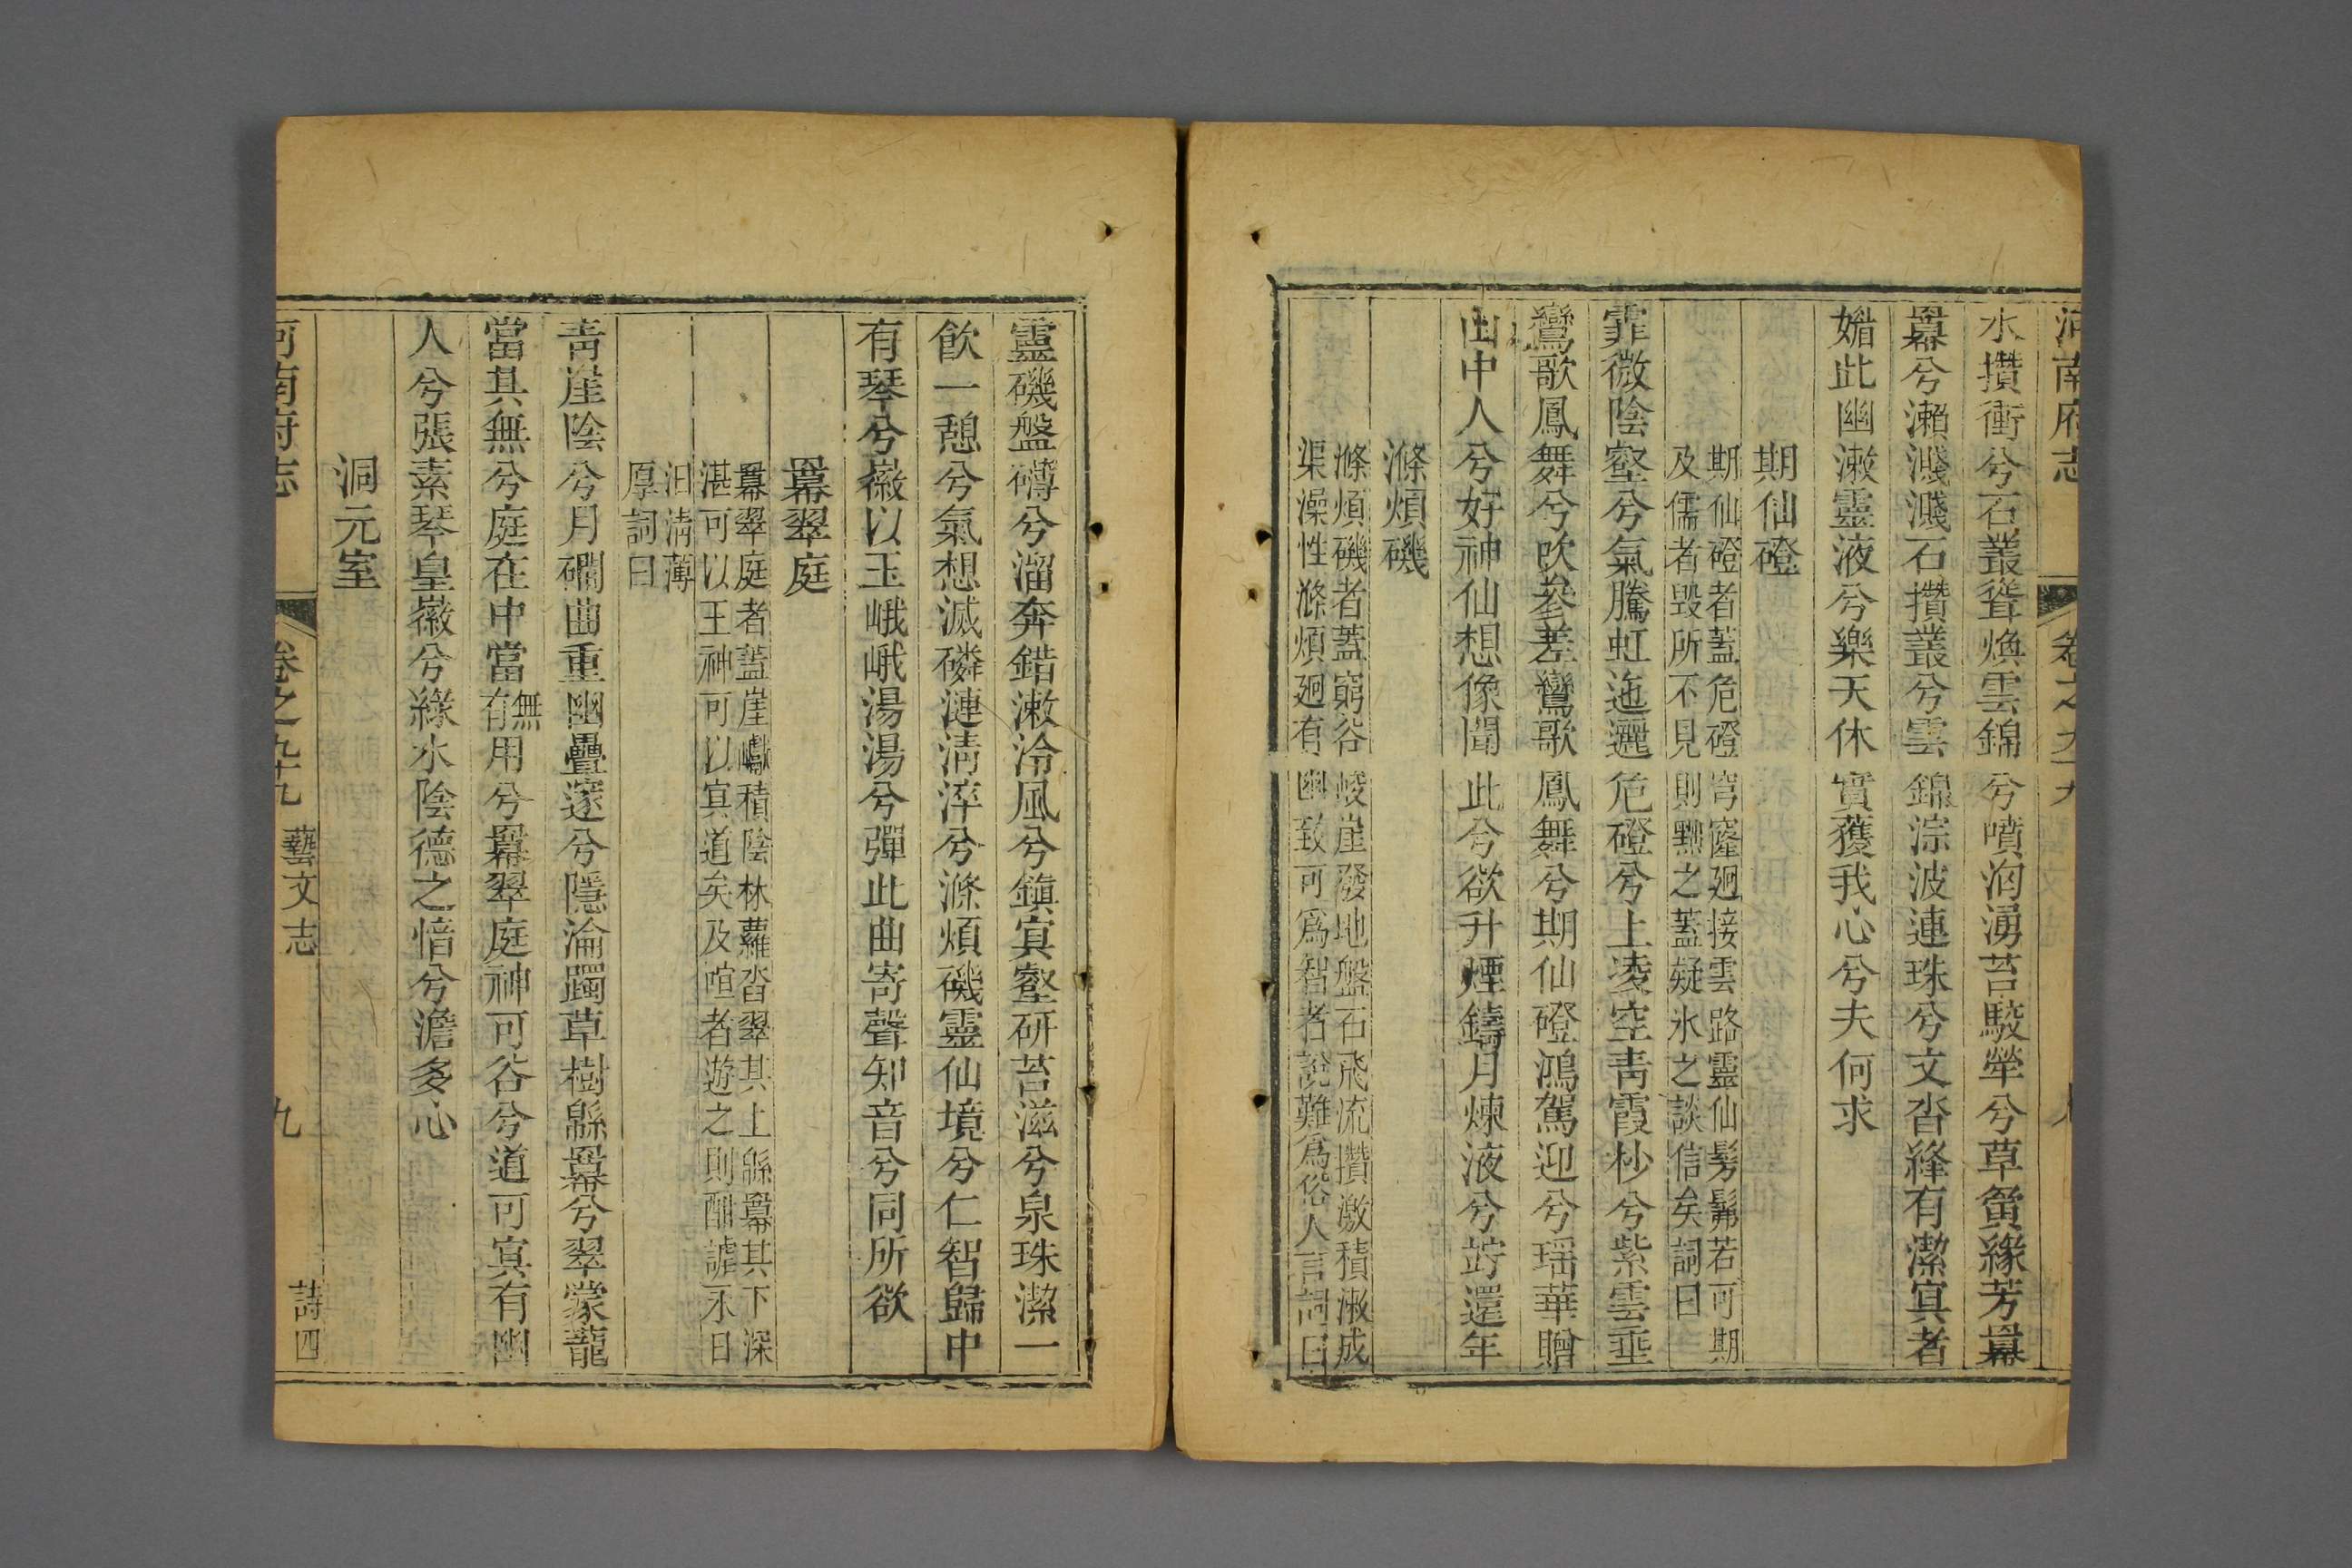 河南府志 卷之九十九
水攢衝兮石叢聳煥雲錦兮噴洶湧苔駮犖兮草夤緣芳羃
羃兮瀨濺濺石攢叢兮雲錦淙波連珠兮文沓絳有潔㝠者
媚此幽漱靈液兮樂天休實獲我心兮夫何求
期仙磴
期仙磴者蓋危磴穹窿廻接雲路靈仙髣髴若可期
及儒者毁所不見則黜之蓋疑氷之談信矣詞曰
霏微陰壑兮氣騰虹迤邐危磴兮上凌空靑霞杪兮紫雲垂
鸞歌鳳舞兮吹參差鸞歌鳳舞兮期仙磴鴻駕迎兮兮瑶華贈
山中人兮好神仙想像聞此兮欲升煙鑄月煉液兮竚還年
滌煩磯
滌煩磯者蓋窮谷峻崖發地盤石飛流攢激積漱成
渠澡性滌煩廻有幽致可爲智者說難爲俗人言詞曰
靈磯盤礴兮溜奔錯漱泠風兮鎭㝠壑研苔滋兮泉珠潔一
飲一憩兮氣想滅磷漣淸淬兮滌煩磯靈仙境兮仁智歸中
有琴兮徽以玉峨峨湯湯兮彈此曲寄聲知音兮同所欲
羃翠庭
羃翠庭者蓋崖巘積陰林蘿沓翠其上緜羃其下深
湛可以王神可以㝠道矣及喧者遊之則酣謔永日
汩淸薄
厚詞曰
靑崖陰兮月磵曲重幽疊邃兮隱淪躅草樹緜羃兮翠蒙蘢
當其無兮庭在中當無有用兮羃翠庭神可谷兮道可㝠有幽
人兮張素琴皇徽兮綠水陰德之愔兮澹多心
洞元室
河南府志 卷之九十九 藝文志 九 詩四